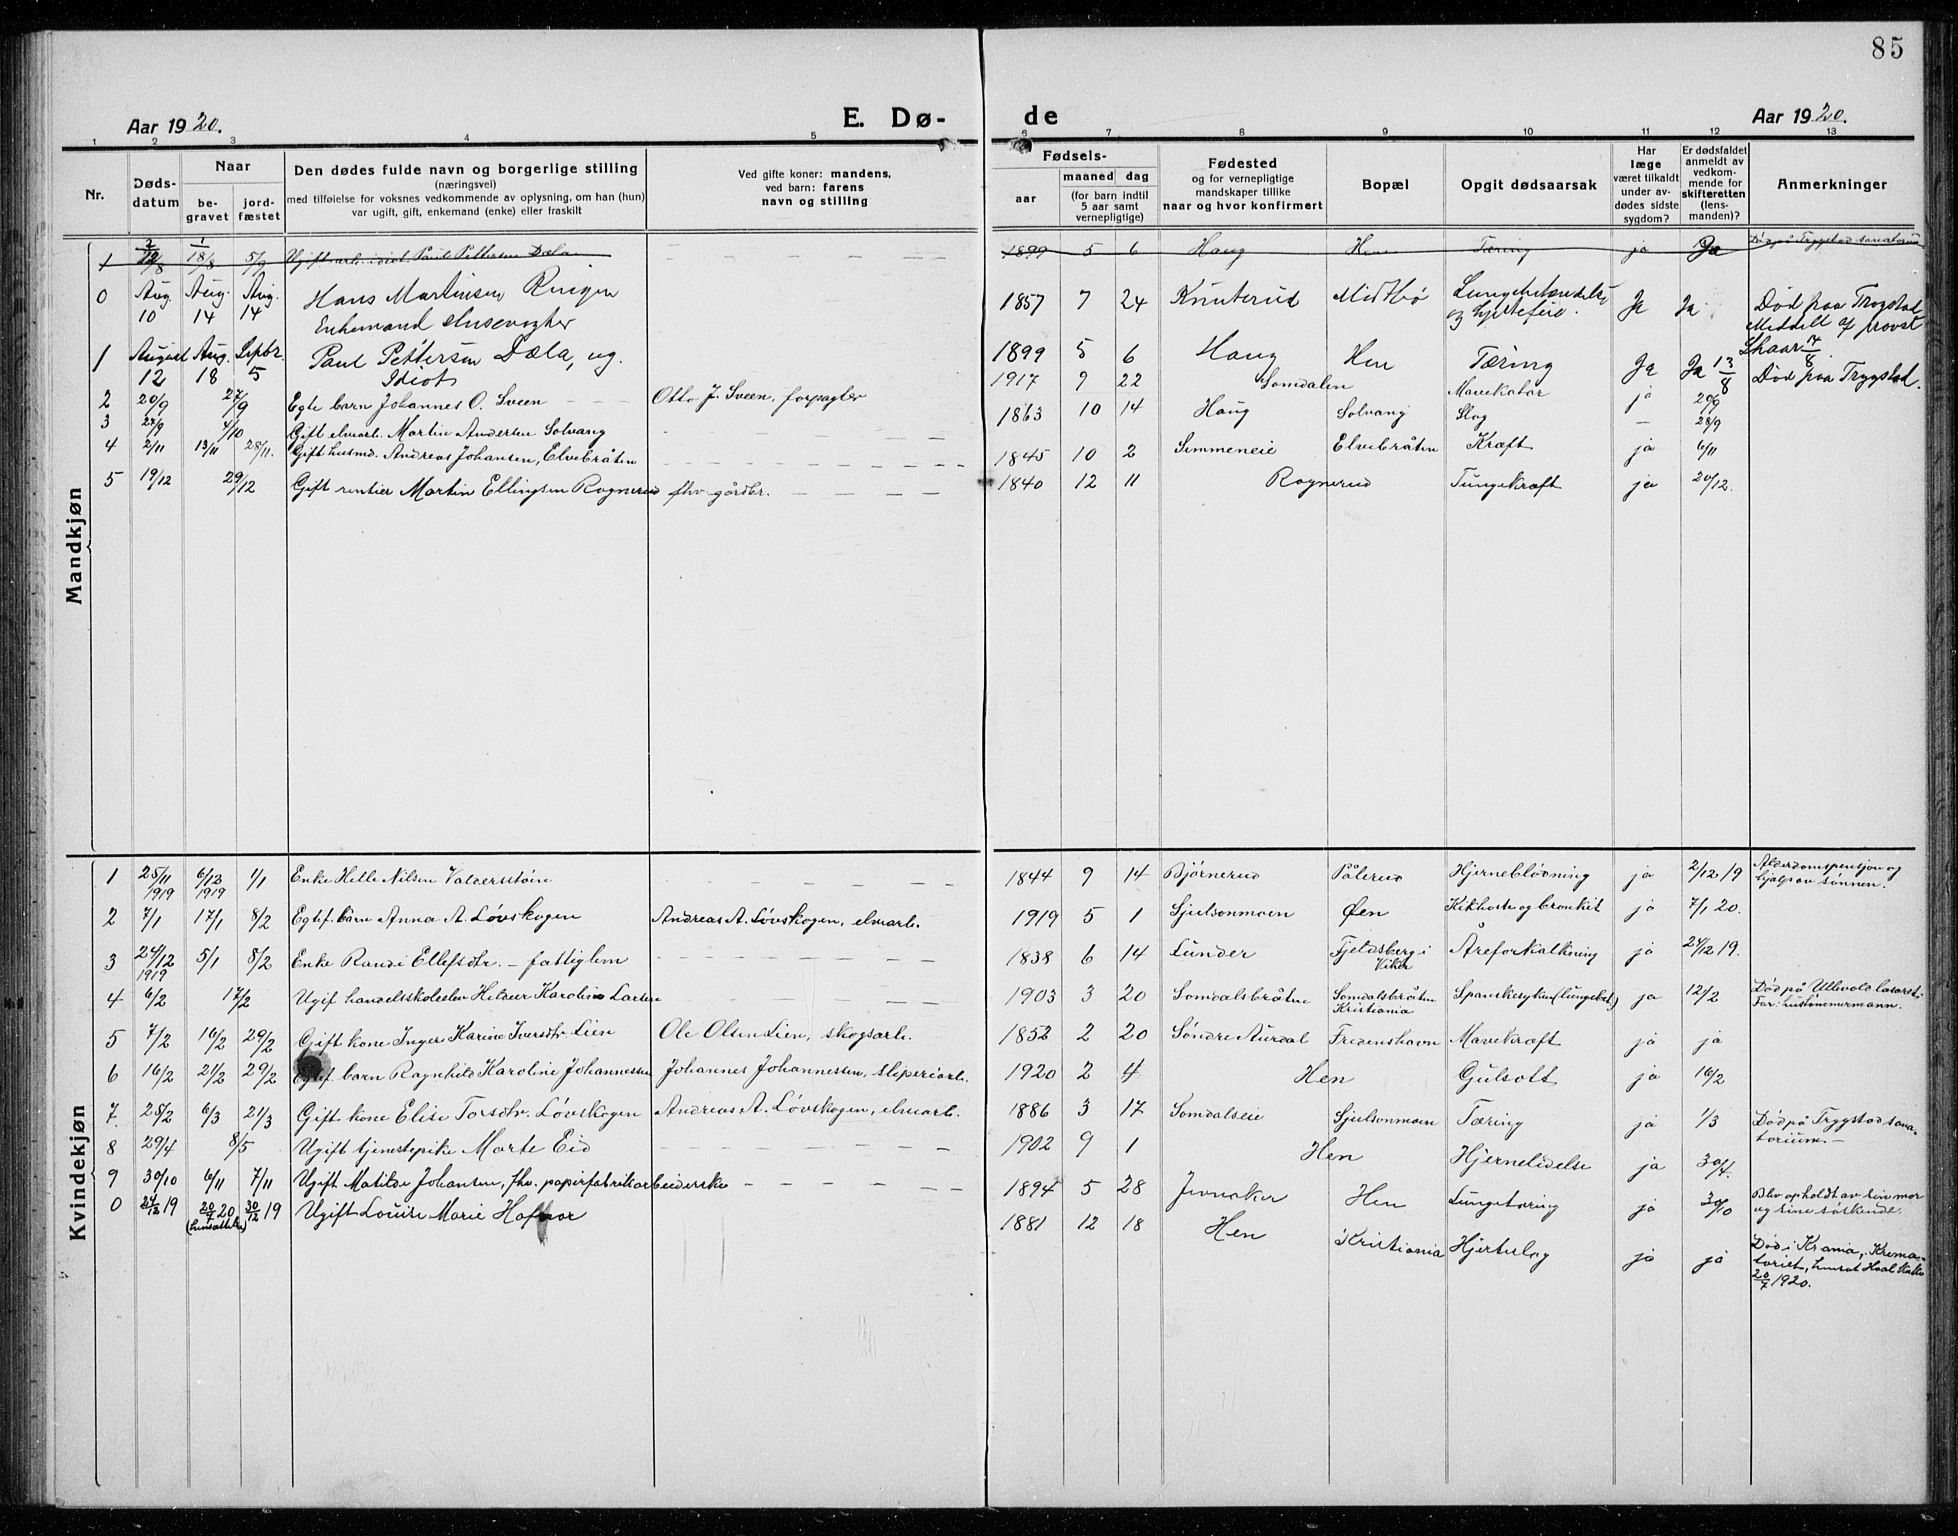 85
Aar 1920. E. Dø- de Aar 1920.
1 2 3 4 5 6 7 8 9 10 11 12 13
Nr. Døds-datum Naar be-gravet jord-fæstet Den dødes fulde navn og borgerlige stilling (næringsvei) med tilføielse for voksnes vedkommende av oplysning, om han (hun) var ugift, gift, enkemand (enke) eller fraskilt Ved gifte koner: mandens, ved barn: farens navn og stilling Fødsels- aar maaned dag (for barn indtil 5 aar samt vernepligtige) Fødested og for vernepligtige mandskaper tillike naar og hvor konfirmert Bopæl Opgit dødsaarsak Har læge været tilkaldt under av-dødes sidste sygdom? Er dødsfaldet anmeldt av vedkom-mende for skifteretten (lens-manden)? Anmerkninger
Mandkjøn
1 12/8 18/8 5/9 Ugift arb. idiot Paul Pettersen Dæla 1899 5 6 Haug Hen Tæring ja Ja Død på Trygstad sanatorium
0 Aug. 10 Aug. 14 Aug. 14 Hans Martinsen Ringen Enkemand 1857 7 24 Knuterud Midtbø og hjertefeil. Ja Ja Død paa Trygstad Meddelt af provst Skaar 17/8.
1 August 12 Aug. 18 Septbr. 5 Paul Pettersen Dæla, ug. Idiot 1899 5 6 Haug Hen Tæring Ja Ja 13/8 Død paa Trygstad.
2 20/9 27/9 Egte barn Johannes O. Sveen Otto J. Sveen, forpagter 1917 9 22 Somdalen Mavekatar ja 20/9
3 28/9 4/10 Gift elvearb. Martin Andersen Solvang 1863 10 14 Haug Solvang Slag – 28/9
4 2/11 13/11 28/11. Gift husmd. Andreas Johansen, Elvebråten 1845 10 2 Simmeneie Elvebråten Kræft ja 6/11
5 19/12 29/12 Gift rentier Martin Ellingsen Rognerud fhv. gårdbr. 1840 12 11 Rognerud Tungekræft ja 20/12.
Kvindekjøn
1 25/11 1919 6/12 1919 1/1 Enke Helle Nilsen Valdersstøen 1844 9 14 Bjørnerud Pålerud Hjerneblødning ja 2/12 19 Alderdomspension og hjælp av sønnen.
2 7/1 17/1 8/2 Egtef. barn Anna A. Løvskogen Andreas A. Løvskogen, elvearb. 1919 5 1 Gjulsonmoen Øen Kikhoste og bronkit ja 7/1 20.
3 24/12 1919 5/1 8/2 Enke Randi Ellefsdtr. – fattiglem 1838 6 14 Lunder Fjeldsberg i Viker Åreforkalkning ja 24/12 19.
4 6/2 17/2 Ugif handelsskoleelev Hildur Karoline Larsen 1903 3 20 Somdalsbråten Somdalsbråten Kristiania Spanskesyken (lungebet.) ja 12/2 Død på Ullevold lasaret. Far: hustømmermann.
5 7/2 16/2 29/2 Gift kone Inger Karine Iversdtr. Lien Ole Olsen Lien, skogsarb. 1852 2 20 Søndre Aurdal Fredenshavn Mavekræft ja ja
6 16/2 21/2 29/2 Egtef. barn Ragnhild Karoline Johannessen Johannes Johannessen, sliperiarb. 1920 2 4 Hen Gulsott ja 16/2
7. 25/2 6/3 21/3 Gift kone Elise Torsdtr. Løvskogen Andreas A. Løvskogen, elvearb. 1886 3 17 Somdalseie Gjulsonmoen Tæring ja 1/3 Død på Trygstad sana-torium. –
8 29/4 8/5 Ugift tjenestepike Marte Eid 1902 9 1 Hen Hjernelidelse ja 30/4.
9 30/10 6/11 7/11 Ugift Matilde Johansen, fhv. papirfabrikarbeiderske 1894 5 28 Jevnaker Hen Lungetæring ja 30/10 Blev opholdt av sin mor og sine søskende.
0 24/12 19 20/7 20 30/12 19 Ugift Louise Marie Hafnor 1881 12 18 Hen Kristiania Hjerteslag ja ja Død i Krania, Krema-toriet, 20/7 1920.